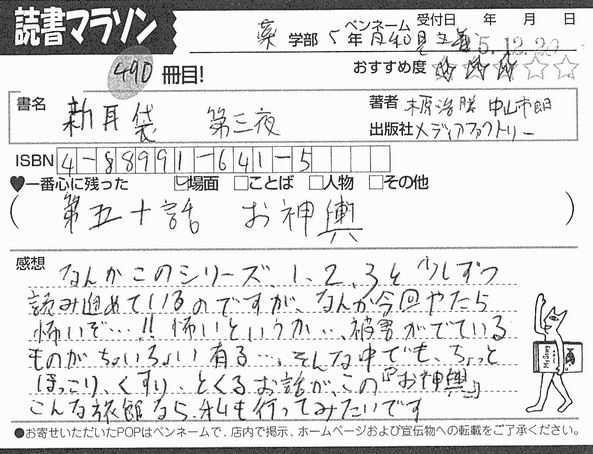 読書マラソン
ペンネーム 受付日 年 月 日
薬 学部 5 年 月和 5.12.20
490 冊目! おすすめ度 ★★★☆☆
書名 新耳袋 第三夜
著者 木原浩勝 中山市朗
出版社 メディアファクトリー
ISBN 4-88991-641-5
♥一番心に残った ☑場面 □ことば □人物 □その他
(第五十話 お神輿)
感想 なんかこのシリーズ、1、2、3と少しずつ
読み進めているのですが、なんか今回やたら
怖いぞ…!! 怖いというか…、被害がでている
ものがちょいちょい有る…。そんな中でも、ちょっと
ほっこり、くすり、とくるお話が、この『お神輿』
こんな旅館なら、私も行ってみたいです
●お寄せいただいたPOPはペンネームで、店内で掲示、ホームページおよび宣伝物への転載をご了承ください。